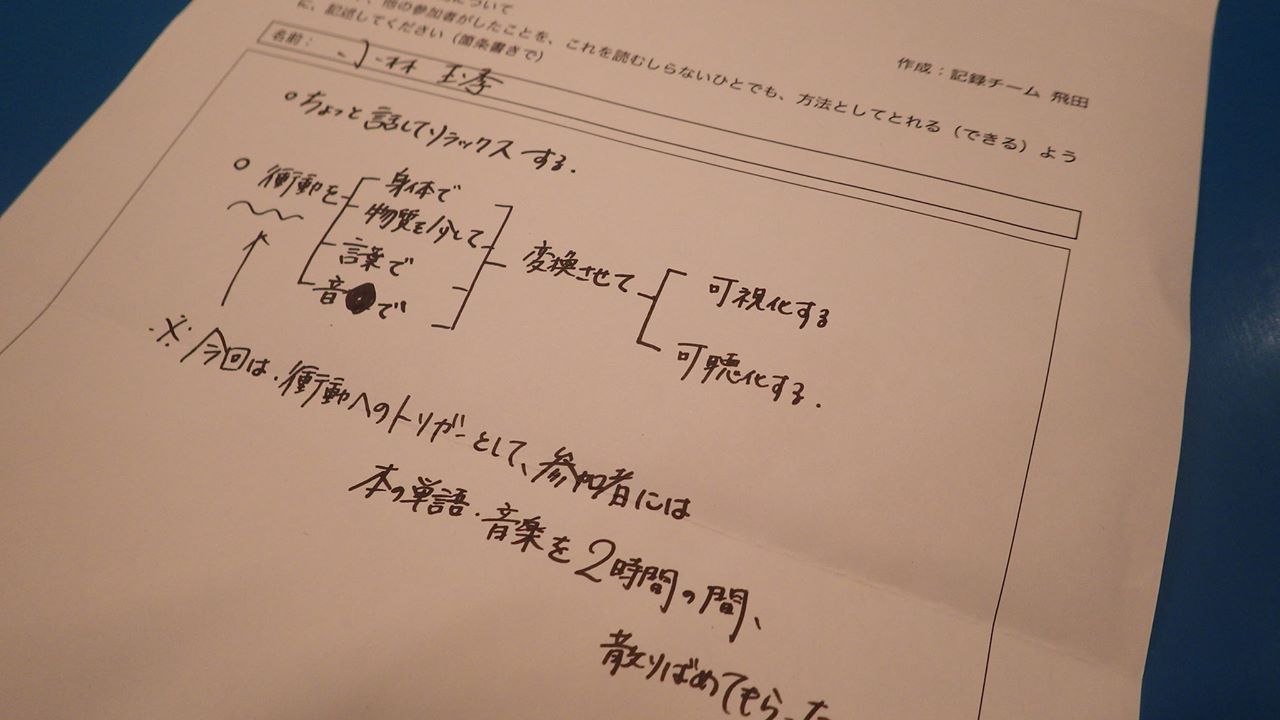 について
他の参加者がしたことを、これを読むしらないひとでも、方法としてとれる（できる）よう
に、記述してください（箇条書きで）
作成：記録チーム 飛田
名前： 小林
ちょっと話してリラックスする.
衝動を
身体で
物質を介して
言葉で
音で
変換させて
可視化する
可聴化する.
※今回は、衝動へのトリガーとして、参加者には
本の単語・音楽を2時間の間、
散りばめてもらった